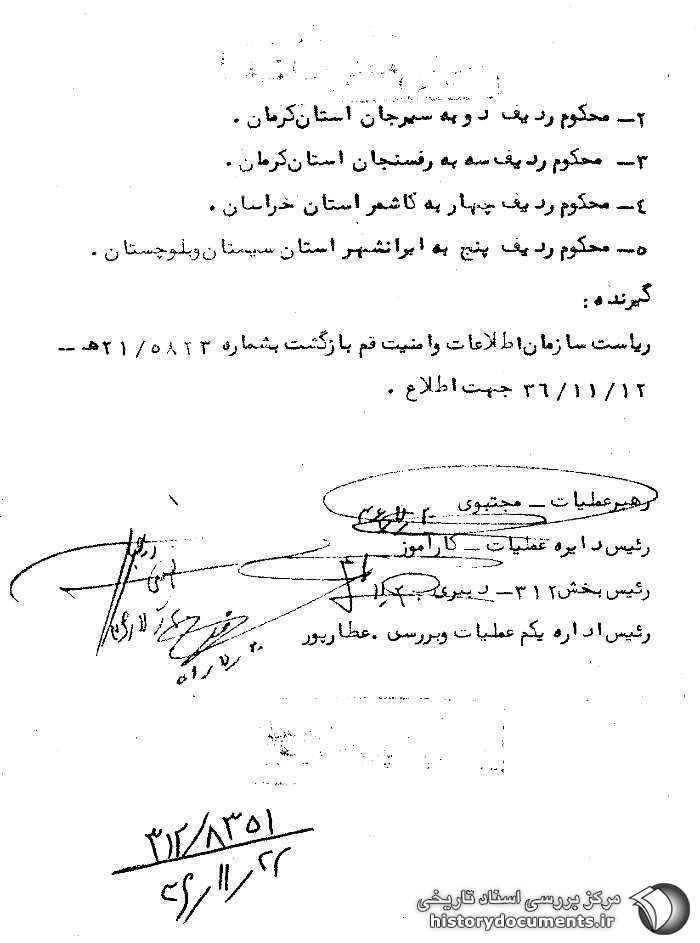 ۲ــ محکوم ردیف دو به سیرجان استان‌کرمان .
۳ــ محکوم ردیف سه به رفسنجان استان‌کرمان .
٤ــ محکوم ردیف چهار به کاشمر استان خراسان .
۵ــ محکوم ردیف پنج به ایرانشهر استان سیستان‌وبلوچستان .
گیرنده :
ریاست سازمان‌اطلاعات وامنیت قم بازگشت بشماره ۲۱/۵۸۲۳ھ ــ
۳٦/۱۱/۱۲ جهت اطلاع .
رهبرعملیات ــ مجتبوی
رئیس دایره عملیات ــ کارآموز
رئیس بخش ۳۱۲ــ دبیری
رئیس اداره یکم عملیات وبررسی . عطارپور
۳۱۲/۸۳۵۱
۳٦/۱۱/۲۲
مرکز بررسی اسناد تاریخی
historydocuments.ir